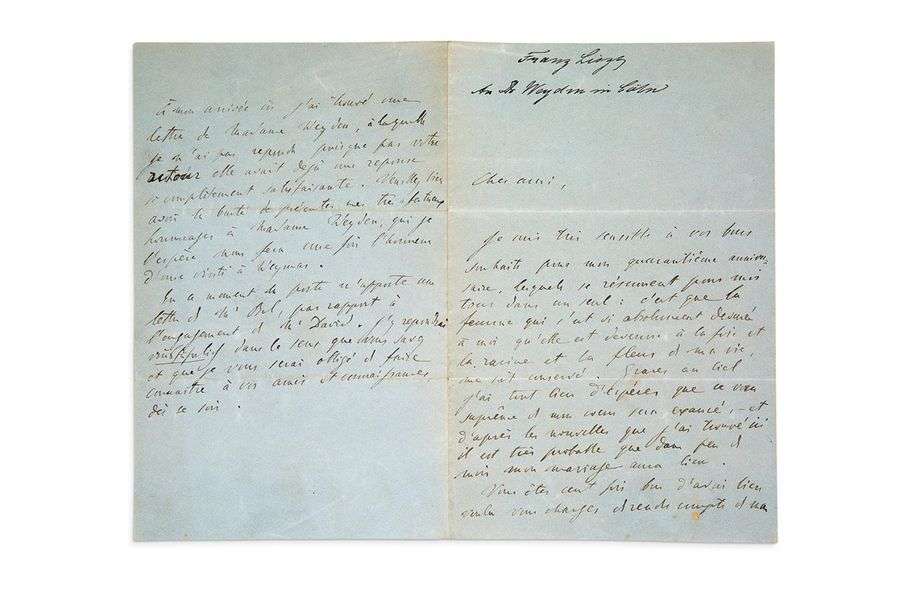 Franz Liszt
An Dr Weyden in Cöln
Cher ami,
Je suis très sensible à vos bons
souhaits pour mon quarantième anniver-
saire, lesquels se résument pour moi
tous dans un seul : c'est que la
femme qui s'est si absolument dévouée
à moi qu'elle est devenue à la fois et
la racine et la fleur de ma vie,
me soit conservée. Graces au ciel
j'ai tout lieu d'espérer que ce voeu
suprême de mon coeur sera exaucé, – et
d'après les nouvelles que j'ai trouvé ici
il est très probable que dans peu de
mois mon mariage aura lieu.
Vous êtes cent fois bon d'avoir bien
voulu vous charger de rendre compte de ma
à mon arrivée ici j'ai trouvé une
lettre de Madame Weyden, à laquelle
je n'ai pas repondu puisque par votre
retour elle avait déjà une reponse
si complètement satisfaisante. Veuillez bien
avoir la bonté de présenter mes très
hommages à Madame Weyden, qui je
l'espère nous fera une fois l'honneur
d'une visite à Weymar.
En ce moment la poste m'apporte une
lettre de Mr par rapport à
l'engagement de Mr David. J'y repondrai
dans le sens que vous savez
et que je vous serai obligé de faire
connaitre à vos amis et connaissances,
dès ce soir.